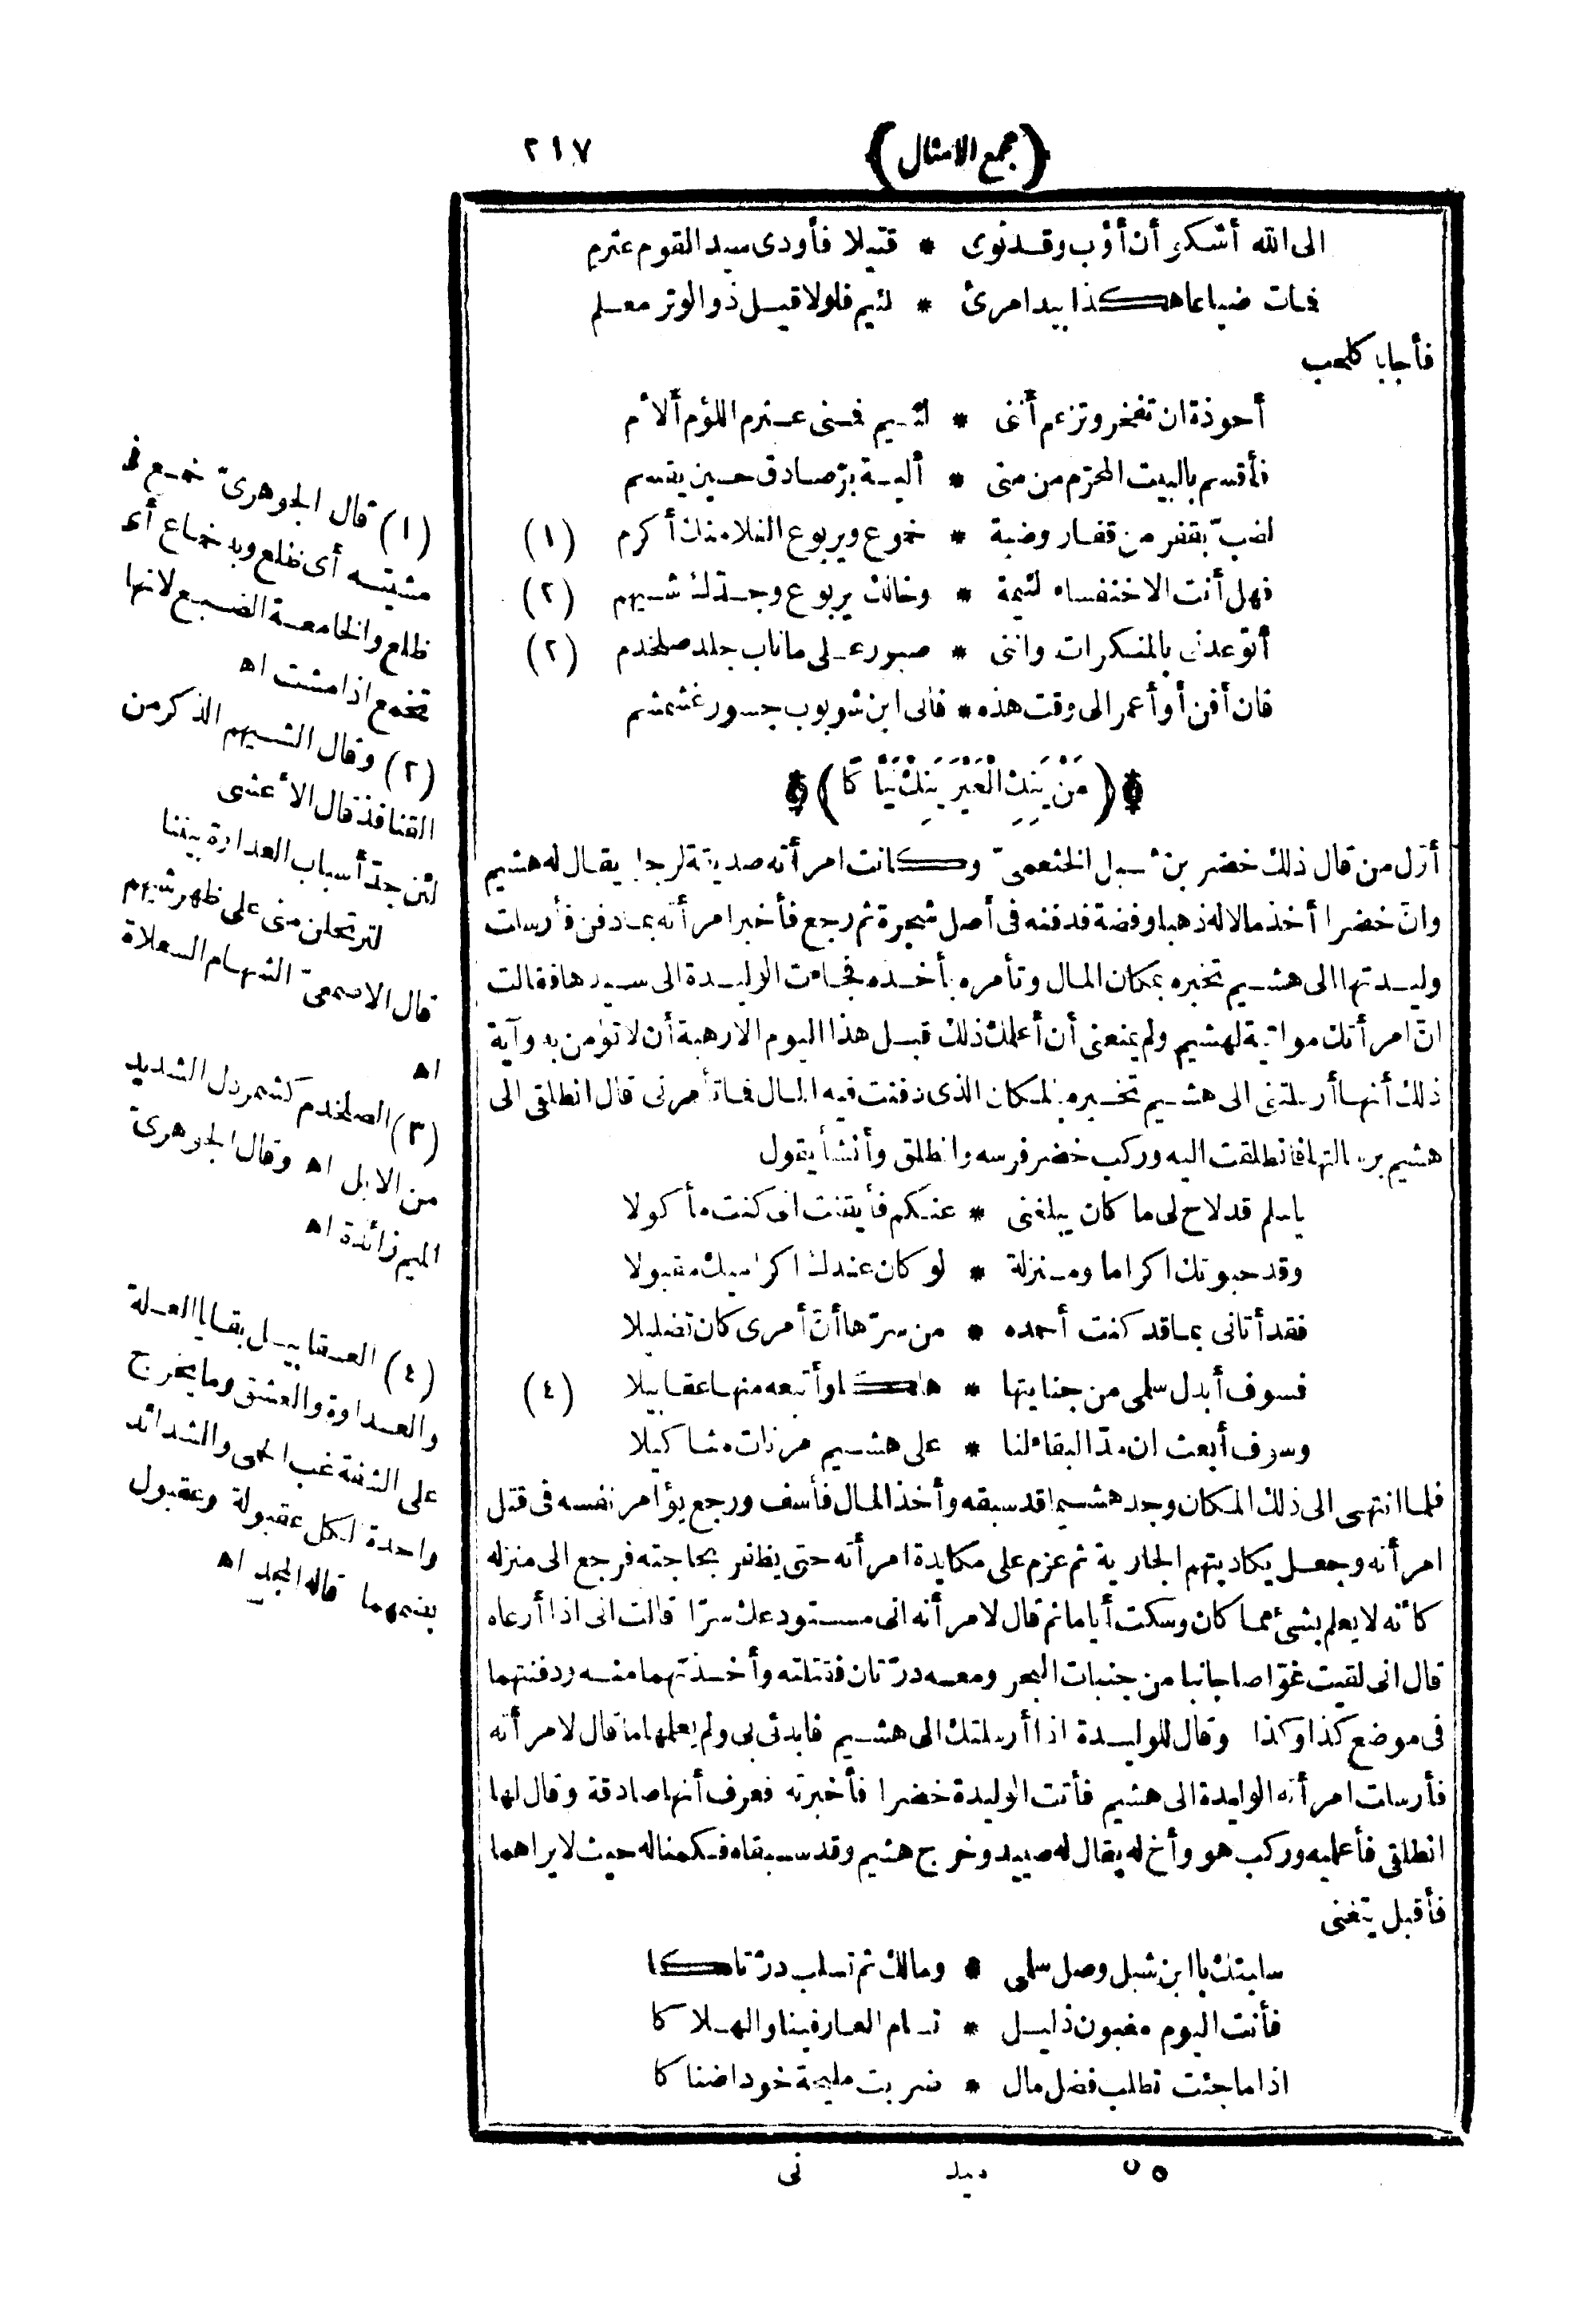 ﴿مجمع الامثال﴾ ٢١٧
الى الله أشكو أن أؤب وقد ثوى * قتيلا فأودى سيد القوم عترم
فمات ضياعا هكذا بيد امرئ * لئيم فلولا قيل ذو الوتر معلم
فأجابا كلحب
أحوذة ان تفخر وتزعم أننى * لئيم فمنى عترم اللؤم ألأم
فأقسم بالبيت المحرّم من منى * ألية برّ صادق حين يقسم
لضبّ بقفر من قفار وضبة * خموع ويربوع الفلا منك أكرم (١)
فهل أنت الا خنفساه لئيمة * وخالك يربوع وجدّك شيهم (٢)
أتوعدنى بالمنكرات واننى * صبور على ما ناب جلد صلخدم (٢)
فان أفن أو أعمر الى وقت هذه * فانى ابن شؤبوب جسور غشمشم
﴿ مَنْ يَنِكِ الْعَيْرَ يَنِكْ نَيَّاكًا ﴾
أوّل من قال ذلك خضر بن شبل الخثعمىّ وكانت امرأته صديقة لرجل يقال له هشيم
وانّ خضرا أخذ مالا له ذهبا وفضة فدفنه فى أصل شجرة ثم رجع فأخبر امرأته بما دفن فأرسلت
وليدتها الى هشيم تخبره بمكان المال وتأمره بأخذه فجاءت الوليدة الى سيدها فقالت
انّ امرأتك مواتية لهشيم ولم يمنعنى أن أعلمك ذلك قبل هذا اليوم الا رهبة أن لا تؤمن به وآية
ذلك أنها أرسلتنى الى هشيم تخبره بالمكان الذى دفنت فيه المال فما تأمرنى قال انطلقى الى
هشيم برسالتها فانطلقت اليه وركب خضر فرسه وانطلق وأنشأ يقول
يا سلم قد لاح لى ما كان يبلغنى * عنكم فأيقنت انى كنت مأكولا
وقد حبوتك اكراما ومنزلة * لو كان عندك اكراميك مقبولا
فقد أتانى بما قد كنت أحمده * من سرّها أنّ أمرى كان تضليلا
فسوف أبدل سلمى من جنايتها * هلكا وأتبعه منها عقابيلا (٤)
وسوف أبعث ان مدّ البقاء لنا * على هشيم مرنات مثاكيلا
فلما انتهى الى ذلك المكان وجد هشيما قد سبقه وأخذ المال فأسف ورجع يؤامر نفسه فى قتل
امرأته وجعل يكاد يتهم الجارية ثم عزم على مكايدة امرأته حتى يظفر بحاجته فرجع الى منزله
كأنه لا يعلم بشئ مما كان وسكت أياما ثم قال لامرأته انى مستودعك سرّا قالت انى اذا أرعاه
قال انى لقيت غوّاصا جانبا من جنبات البحر ومعه درّتان فقتلته وأخذتهما منه ودفنتهما
فى موضع كذا وكذا وقال للوليدة اذا أرسلتك الى هشيم فابدئى بى ولم يعلمها ما قال لامرأته
فأرسلت امرأته الوليدة الى هشيم فأتت الوليدة خضرا فأخبرته فعرف أنها صادقة وقال لها
انطلقى فأعلميه وركب هو وأخ له يقال له صييد وخرج هشيم وقد سبقاه فكمنا له حيث لا يراهما
فأقبل يتغنى
سلبتك يا ابن شبل وصل سلمى * ومالك ثم تسلب درّتاكا
فأنت اليوم مغبون ذليل * تسام العار فينا والهلاكا
اذا ما جئت تطلب فضل مال * ضربت مليحة خودا ضناكا
(١) قال الجوهرىّ خمع فى
مشيته أى ظلع وبه خماع أى
ظلع والخامعة الضبع لانها
تخمع اذا مشت اه
(٢) وقال الشيهم الذكر من
القنافذ قال الأعشى
لئن جدّ أسباب العداوة بيننا
لترتحلن منى على ظهر شيهم
قال الاصمعىّ الشهام السعلاة
اه
(٣) الصلخدم كشمردل الشديد
من الابل اه وقال الجوهرىّ
الميم زائدة اه
(٤) العقابيل بقايا العلة
والعداوة والعشق وما يخرج
على الشفة غب الحمى والشدائد
واحدة الكل عقبولة وعقبول
بضمهما قاله المجد اه
٥٥ ميد نى